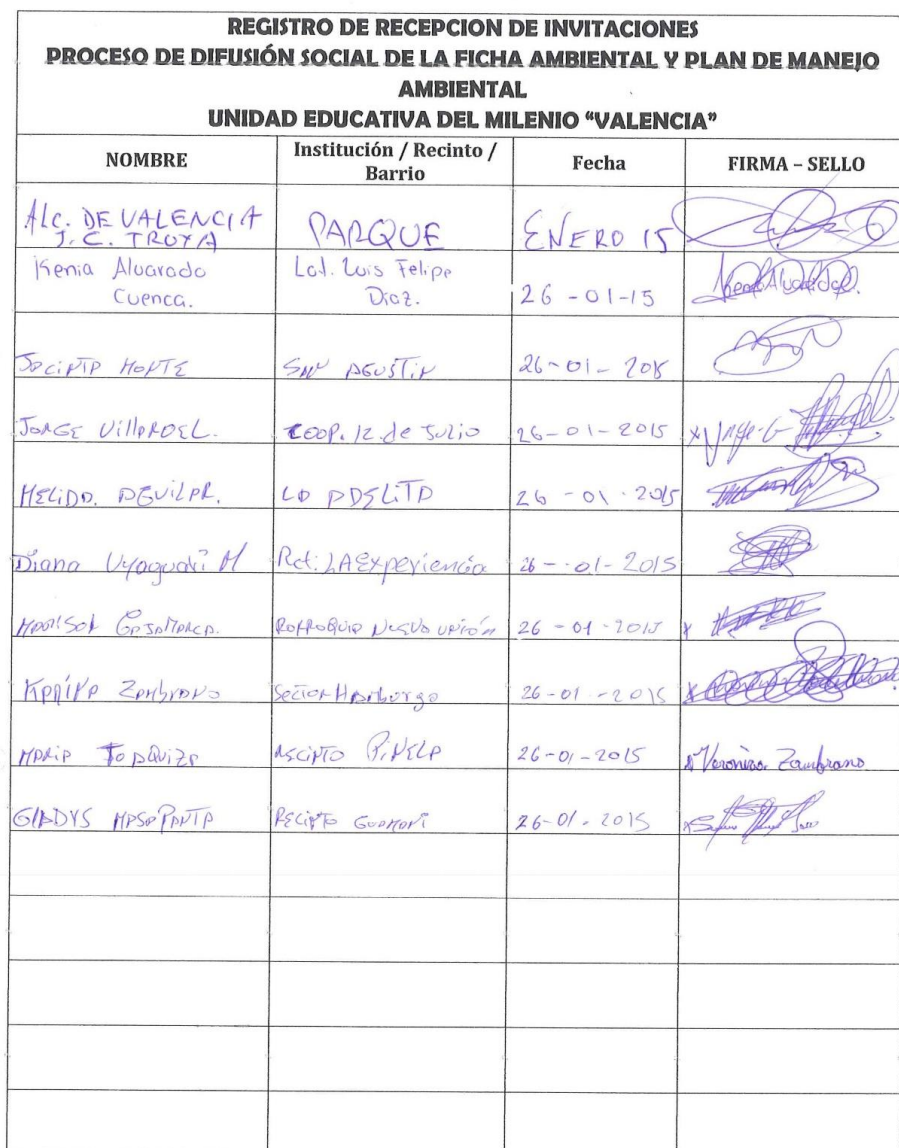 REGISTRO DE RECEPCION DE INVITACIONES
PROCESO DE DIFUSIÓN SOCIAL DE LA FICHA AMBIENTAL Y PLAN DE MANEJO
AMBIENTAL
UNIDAD EDUCATIVA DEL MILENIO "VALENCIA"
NOMBRE Institución / Recinto / Barrio Fecha FIRMA – SELLO
Alc. DE VALENCIA
J. C. TROYA PARQUE ENERO 15
Kenia Alvarado
Cuenca. Lot. Luis Felipe
Diaz. 26 - 01 - 15
26 - 01 - 2015
SAN AGUSTIN
JORGE Villaroel. COOP. 12. de Julio 26 - 01 - 2015
MELIDO. AGUILAR. LA ADELITA 26 - 01 - 2015
Diana M Rct: LA Experiencia 26 - 01 - 2015
PARROQUIA NUEVA UNIÓN 26 - 01 - 2015
KARINA ZAMBRANO Sector Hamburgo 26 - 01 - 2015
MARIA RECINTO 26 - 01 - 2015 Veronica Zambrano
GLADYS RECINTO 26 - 01 - 2015